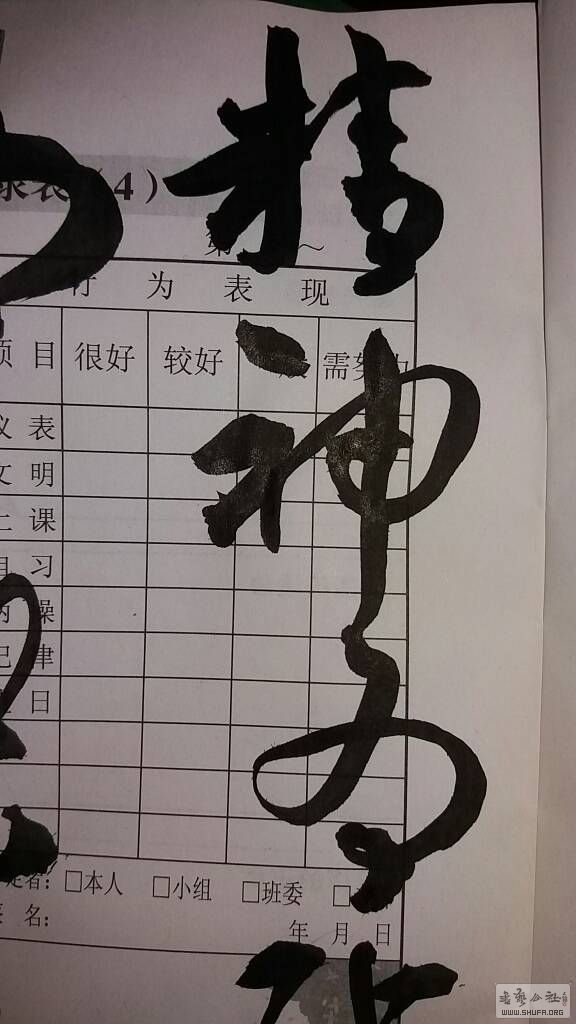 精神为
录表(4)
第 ~
行为表现
项目 很好 较好 般 需努力
仪表
文明
上课
自习
两操
纪律
日
者: □本人 □小组 □班委 □
名: 年 月 日
WWW.SHUFA.ORG